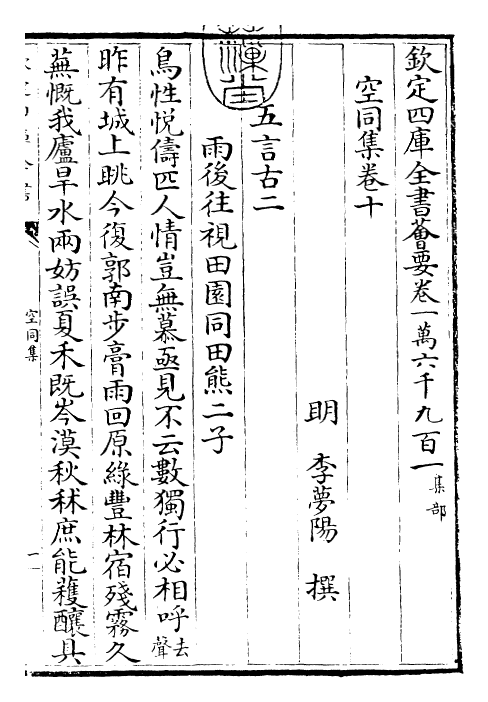 欽定四庫全書薈要卷一萬六千九百一集部
空同集卷十
明 李夢陽 撰
五言古二
雨後往視田園同田熊二子
鳥性悦儔匹人情豈無慕亟見不云數獨行必相呼去聲
昨有城上眺今復郭南步膏雨回原綠豐林宿殘霧久
蕪慨我廬旱水兩妨誤夏禾既岑漠秋秫庶能穫釀具
空同集
一